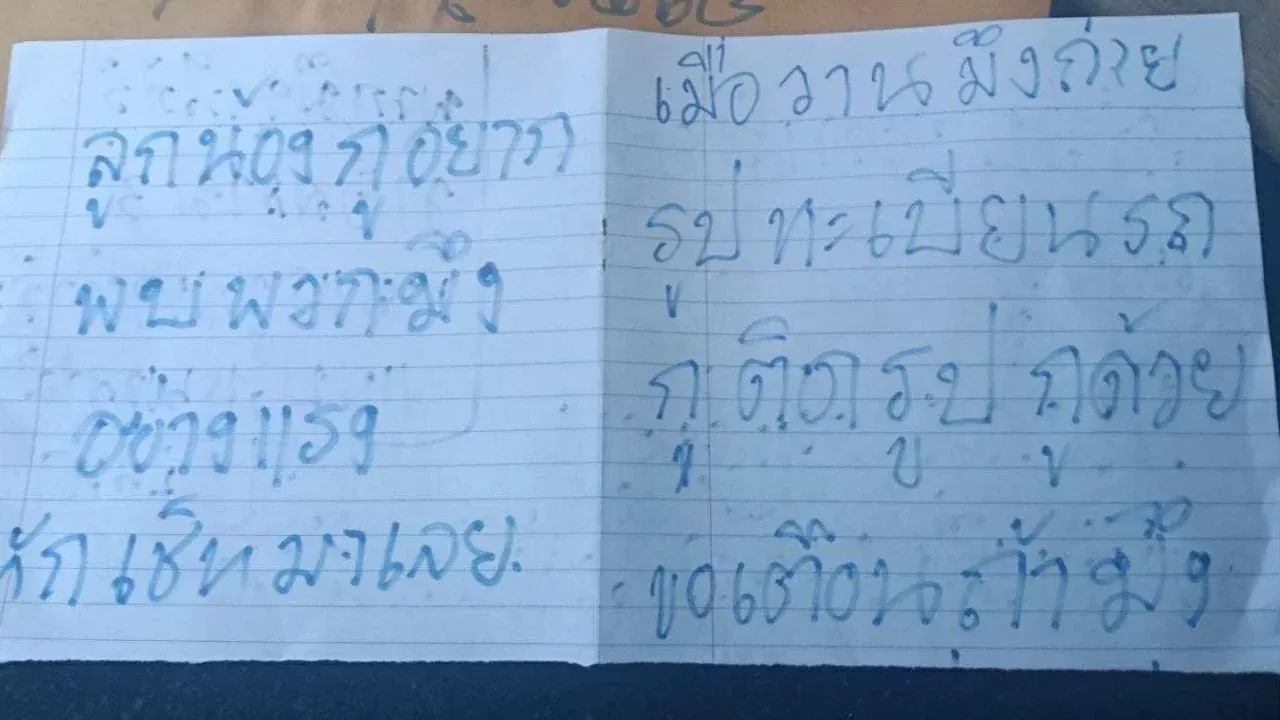 ลูกน้องกูอยาก
พบพวกมึง
อย่างแรง
เชิทมาเลย
เมื่อวานมึงถ่าย
รูปทะเบียนรถ
กูติดรูปกูด้วย
ขอเตือนถ้ามึง